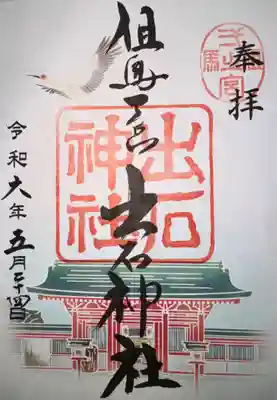 奉拝
但馬一宮 出石神社
出石神社
令和六年五月二十四日